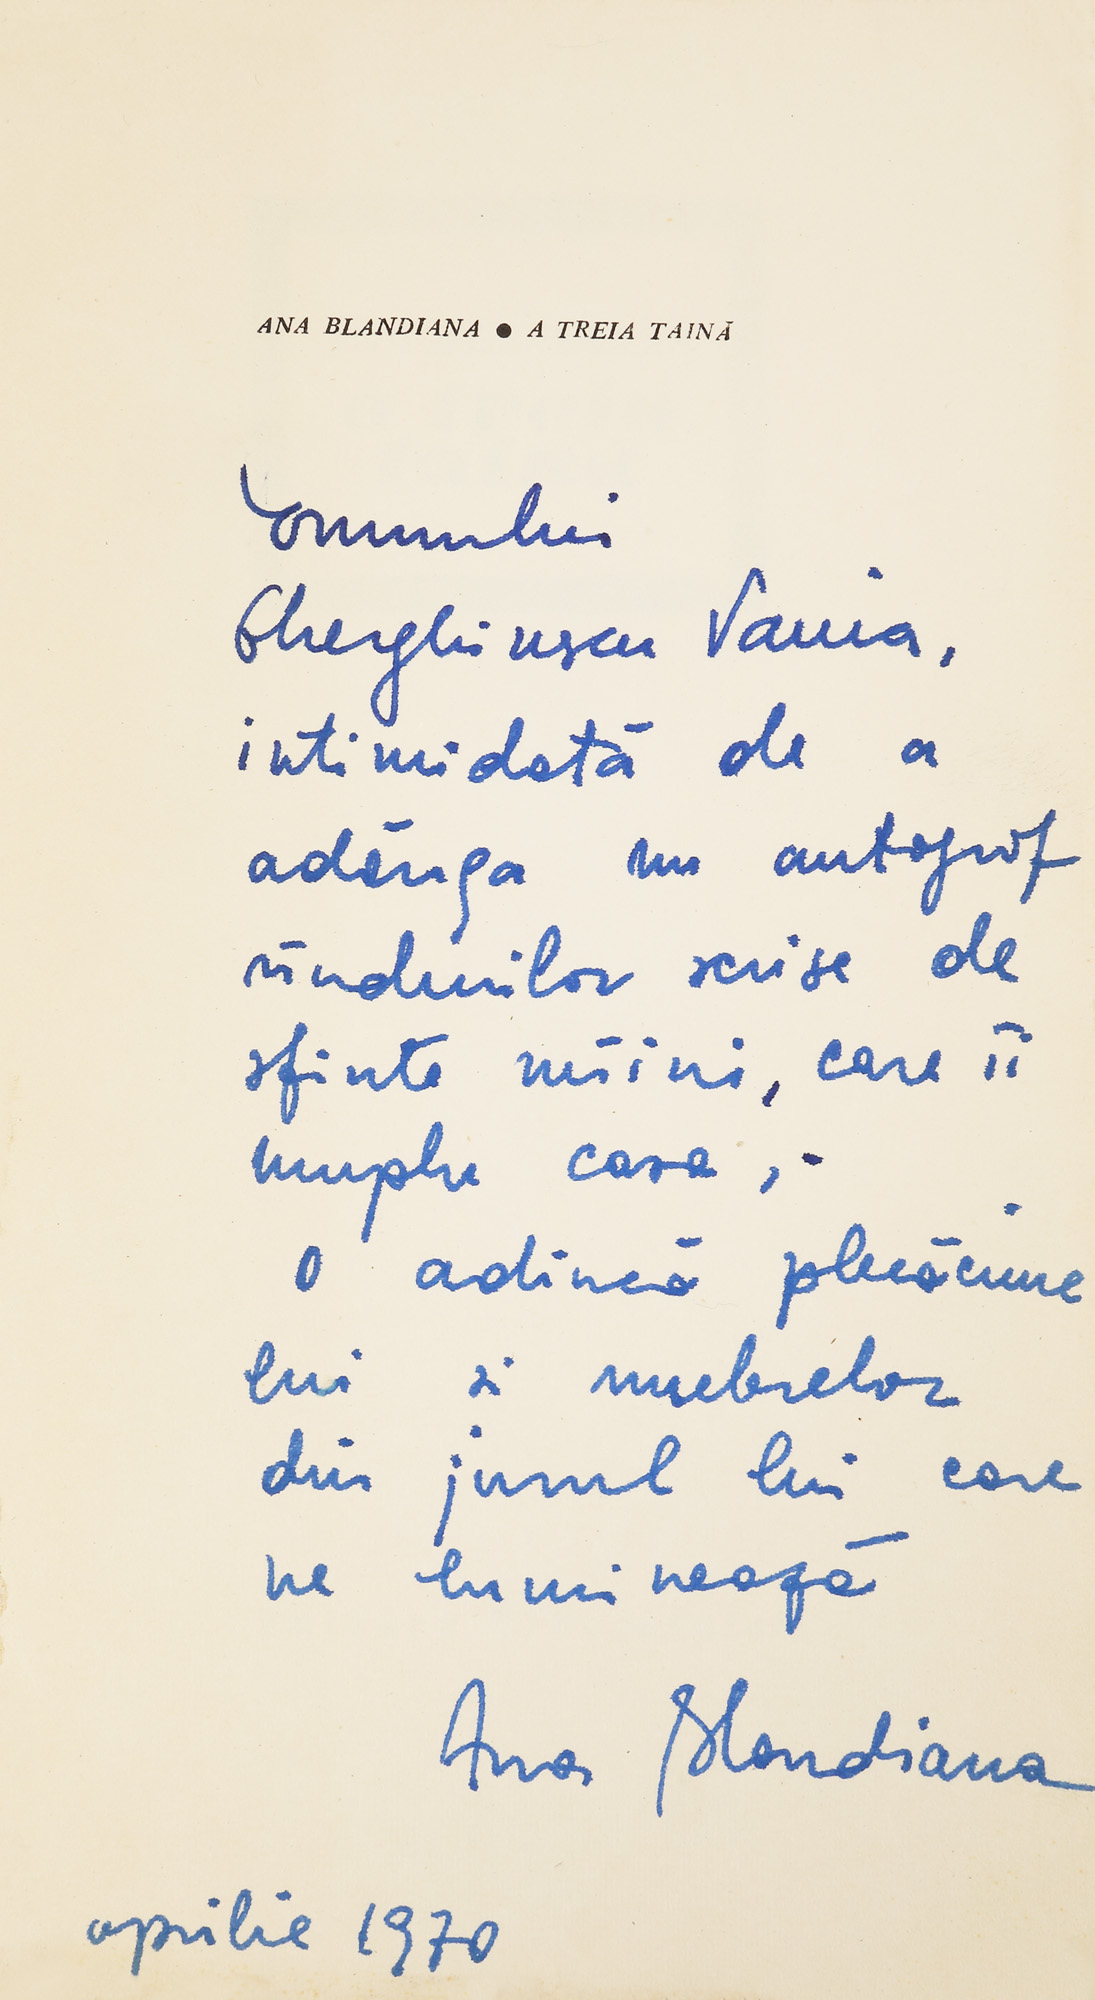 ANA BLANDIANA ● A TREIA TAINĂ
Domnului
Gherghinescu Vania,
intimidată de a
adăuga un autograf
rîndurilor scrise de
sfinte mîini, care îi
umplu casa, -
O adîncă plecăciune
lui și umbrelor
din jurul lui care
ne luminează
Ana Blandiana
aprilie 1970